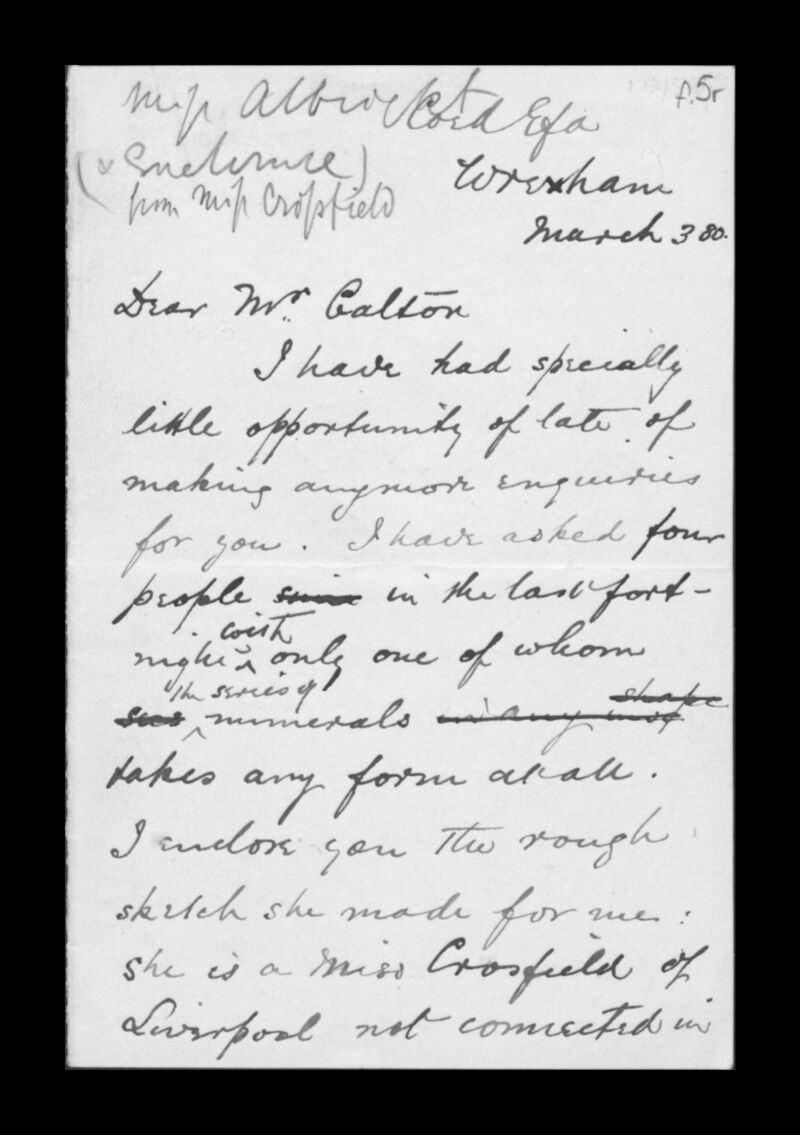 f.5r
Miss Albright
Coed Efa
(& Enclosure)
from Miss Crosfield
Wrexham
March 3 80.
Dear Mr. Galton
I have had specially
little opportunity of late of
making anymore enquiries
for you. I have asked four
people in the last fort-
night with only one of whom
the series of numerals in any shape
takes any form at all.
I enclose you the rough
sketch she made for me:
she is a Miss Crosfield of
Liverpool not connected in